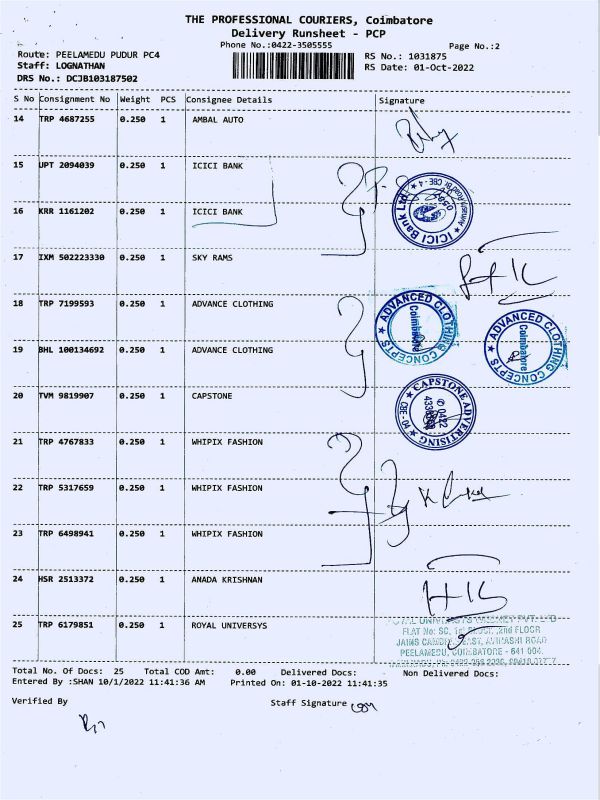 THE PROFESSIONAL COURIERS, Coimbatore
Delivery Runsheet - PCP
Phone No.:0422-3505555
Page No.:2
Route: PEELAMEDU PUDUR PC4
RS No.: 1031875
Staff: LOGNATHAN
RS Date: 01-Oct-2022
DRS No.: DCJB103187502
S No Consignment No Weight PCS Consignee Details Signature
14 TRP 4687255 0.250 1 AMBAL AUTO
15 JPT 2094039 0.250 1 ICICI BANK
16 KRR 1161202 0.250 1 ICICI BANK
ICICI Bank Ltd. CBE - 4
17 IXM 502223330 0.250 1 SKY RAMS
18 TRP 7199593 0.250 1 ADVANCE CLOTHING
ADVANCED CLOTHING CONCEPTS Coimbatore
ADVANCED CLOTHING CONCEPTS Coimbatore
19 BHL 100134692 0.250 1 ADVANCE CLOTHING
20 TVM 9819907 0.250 1 CAPSTONE
CAPSTONE ADVERTISING 0422
21 TRP 4767833 0.250 1 WHIPIX FASHION
22 TRP 5317659 0.250 1 WHIPIX FASHION
23 TRP 6498941 0.250 1 WHIPIX FASHION
24 HSR 2513372 0.250 1 ANADA KRISHNAN
25 TRP 6179851 0.250 1 ROYAL UNIVERSYS
PVT. LTD
FLAT No: 5C, 1st FLOOR, 2nd FLOOR
JAINS EAST, AVINASHI ROAD
PEELAMEDU, COIMBATORE - 641 004.
Total No. Of Docs: 25 Total COD Amt: 0.00 Delivered Docs: Non Delivered Docs:
Entered By :SHAN 10/1/2022 11:41:36 AM Printed On: 01-10-2022 11:41:35
Verified By Staff Signature